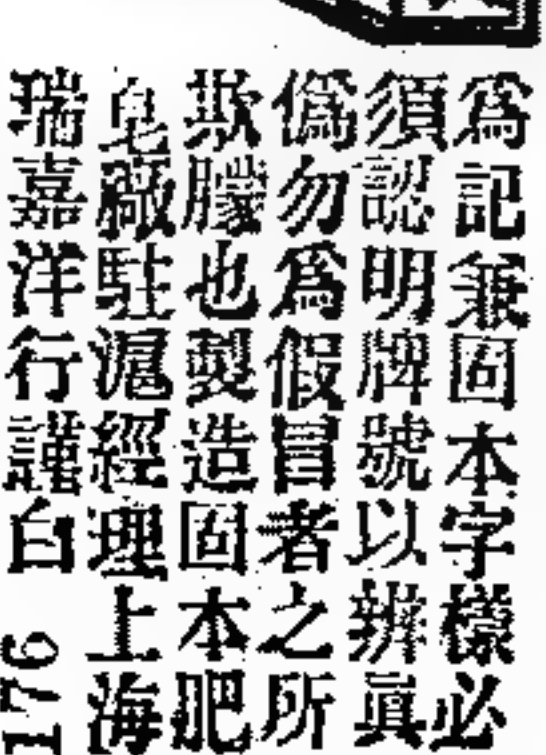 爲記兼固本字樣必
須認明牌號以辨眞
僞勿爲假冒者之所
欺朦也製造固本肥
皂廠駐滬經理上海
瑞嘉洋行謹白
176